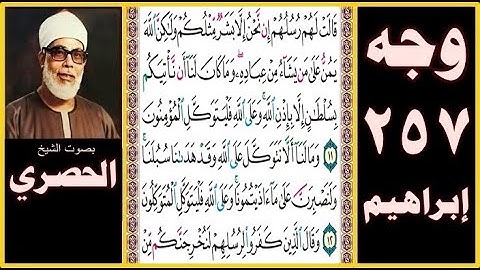 وجه
٢٥٧
إبراهيم
قَالَتْ لَهُمْ رُسُلُهُمْ إِن نَّحْنُ إِلَّا بَشَرٌ مِّثْلُكُمْ وَلَٰكِنَّ ٱللَّهَ
يَمُنُّ عَلَىٰ مَن يَشَآءُ مِنْ عِبَادِهِۦ ۖ وَمَا كَانَ لَنَآ أَن نَّأْتِيَكُم
بِسُلْطَٰنٍ إِلَّا بِإِذْنِ ٱللَّهِ ۚ وَعَلَى ٱللَّهِ فَلْيَتَوَكَّلِ ٱلْمُؤْمِنُونَ
١١ وَمَا لَنَآ أَلَّا نَتَوَكَّلَ عَلَى ٱللَّهِ وَقَدْ هَدَىٰنَا سُبُلَنَا ۚ
وَلَنَصْبِرَنَّ عَلَىٰ مَآ ءَاذَيْتُمُونَا ۚ وَعَلَى ٱللَّهِ فَلْيَتَوَكَّلِ ٱلْمُتَوَكِّلُونَ
١٢ وَقَالَ ٱلَّذِينَ كَفَرُوا۟ لِرُسُلِهِمْ لَنُخْرِجَنَّكُم مِّنْ
بصوت الشيخ
الحصري